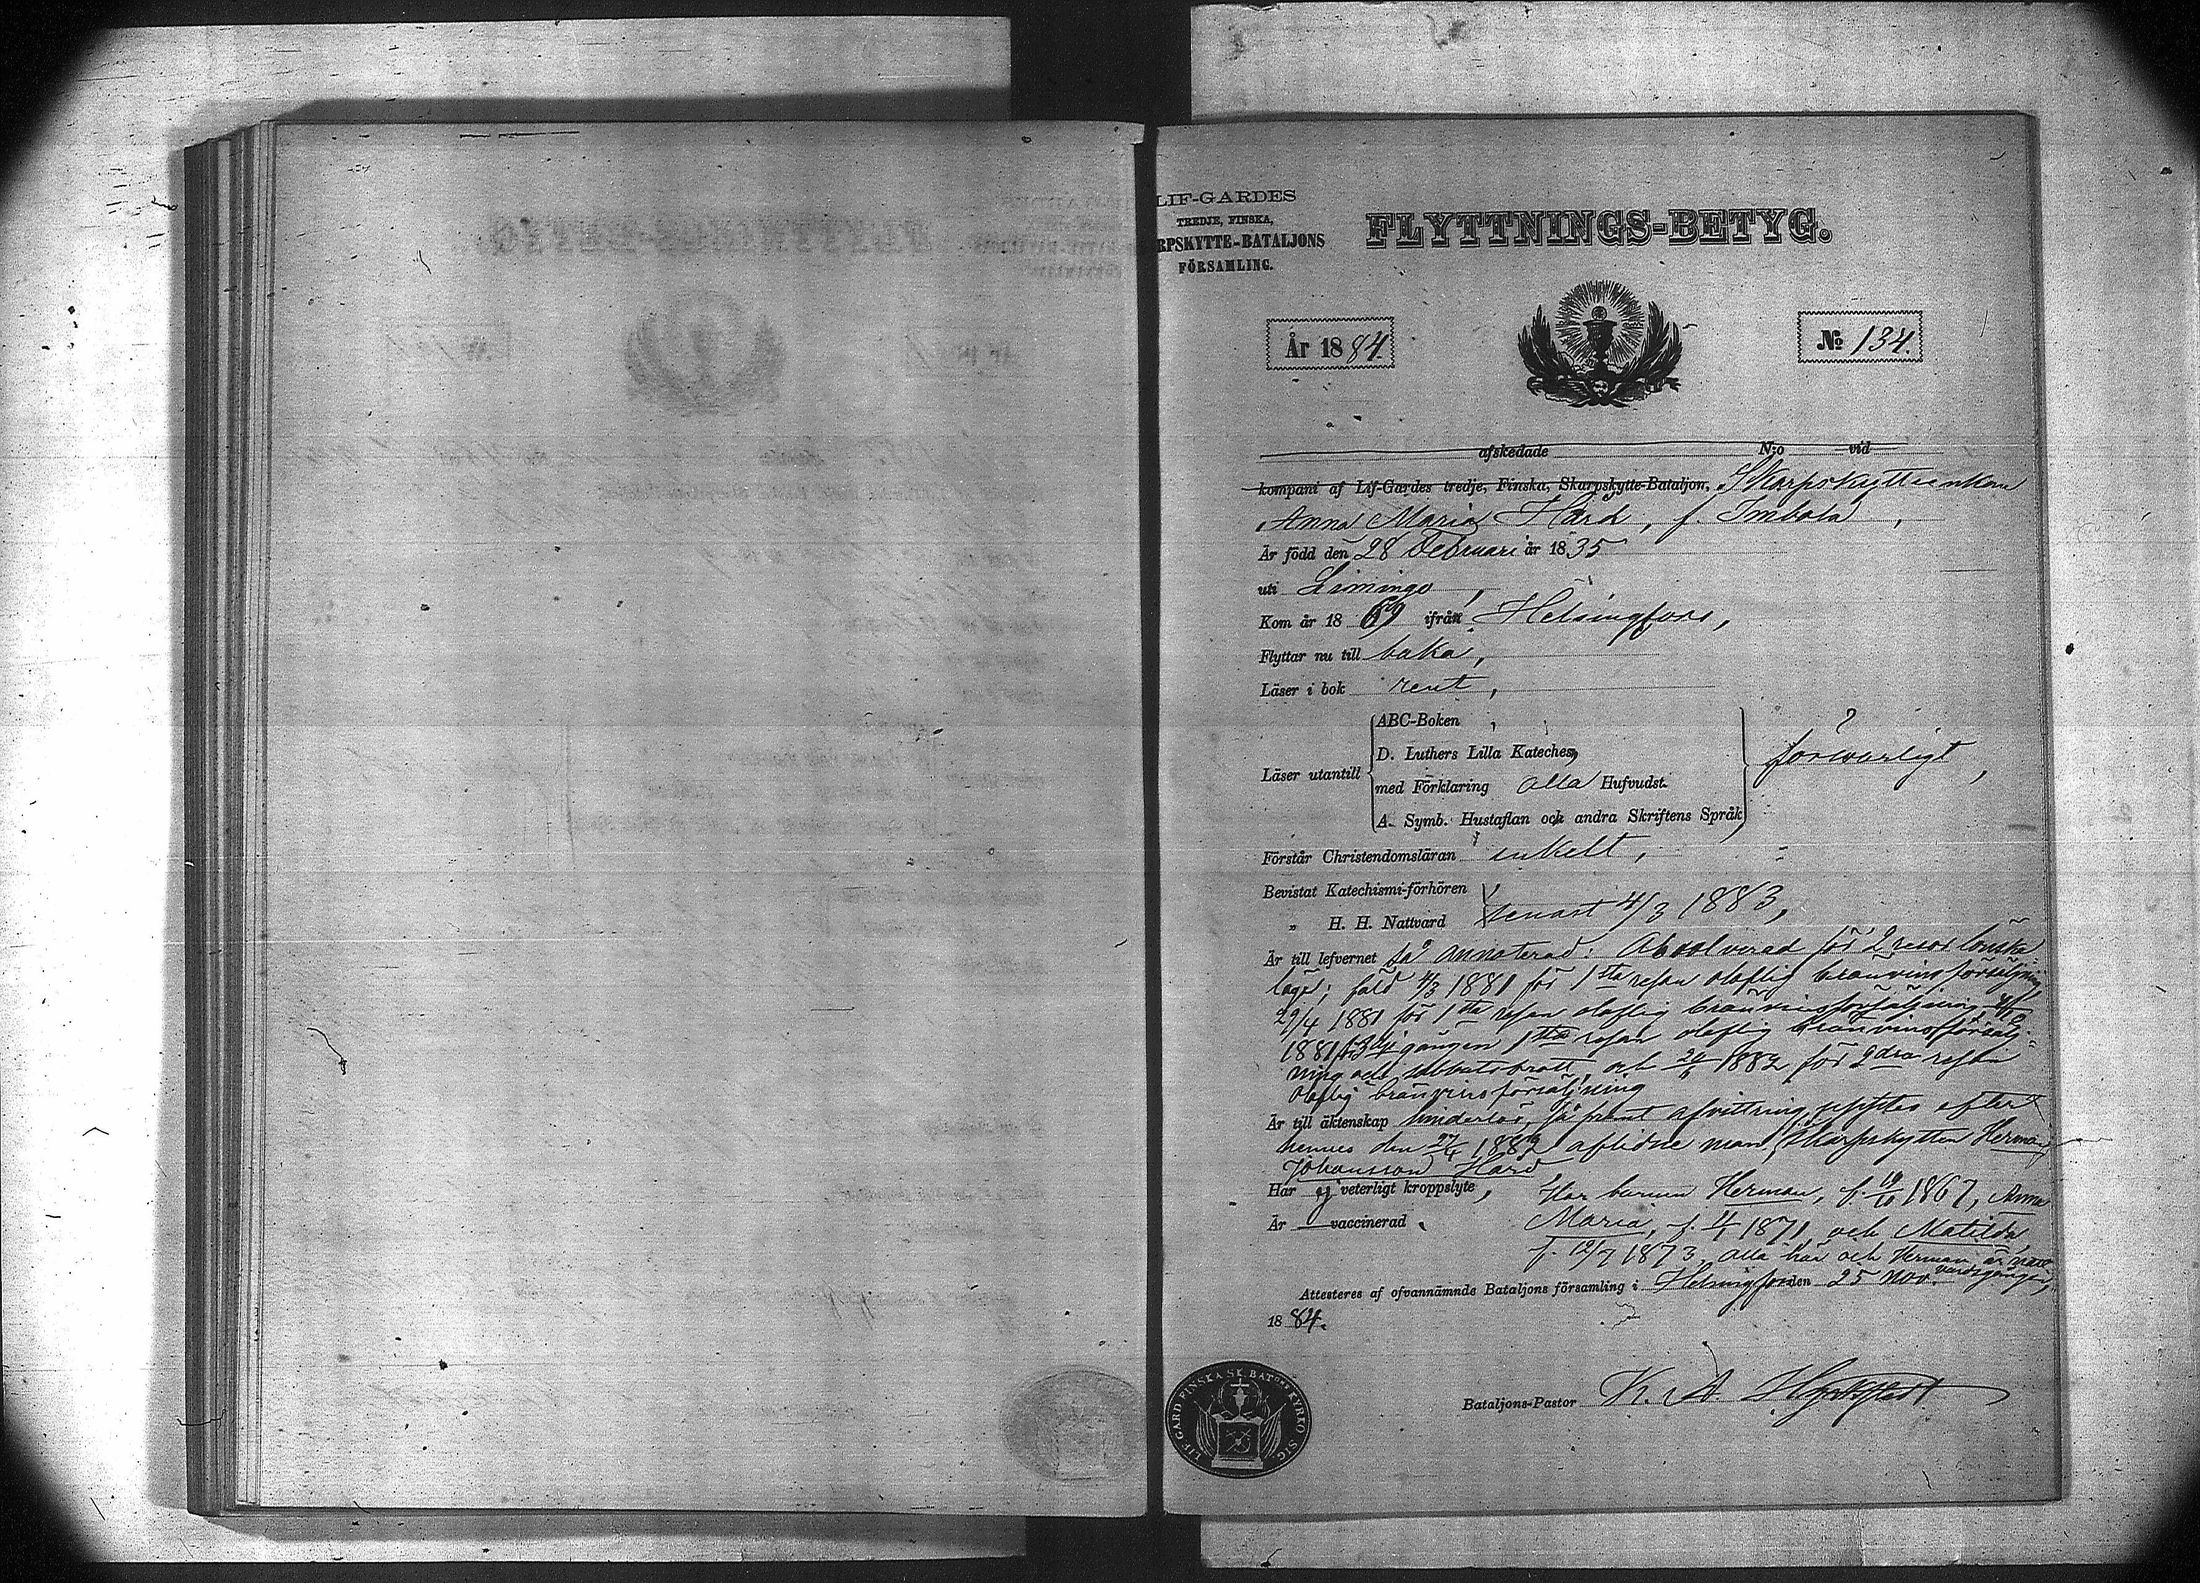 LIF-GARDES
TREDJE, FINSKA,
RPSKYTTE-BATALJONS
FÖRSAMLING.
FLYTTNINGS-BETYG.
År 1884.
No 134.
afskedade N:o vid
kompani af Lif-Gardes tredje, Finska, Skarpskytte-Bataljon, Skarpskytteenkan
Anna Maria Hård, f. Imbola,
Är född den 28 Februari år 1835
uti Limingo,
Kom år 1869 ifrån Helsingfors,
Flyttar nu till baka,
Läser i bok rent,
Läser utantill
ABC-Boken,
D. Luthers Lilla Kateches,
med Förklaring alla Hufvudst.
A. Symb. Hustaflan och andra Skriftens Språk
försvarligt,
Förstår Christendomsläran enkelt,
Bevistat Katechismi-förhören,
„ H. H. Nattvard senast 4/3 1883,
Är till lefvernet så annoterad: Absolverad för 2 resor lönska
läge; fäld 4/3 1881 för 1sta resan olaflig bränvinsförsäljning,
29/4 1881 för 1sta resan olaflig bränvinsförsäljning
1881 för 3dje gången 1sta resan olaflig bränvinsförsälj-
ning och sabbatsbrott, och 1882 för 2dra resan
olaflig bränvinsförsäljning
Är till äktenskap hinderlös, så framt afvittring uppstes efter
hennes den 1882 aflidne man, Skarpskytten Herman
Johansson Hård
Har ej veterligt kroppslyte,
Är vaccinerad.
Har barnen Herman, f. 19/10 1867, Anna
Maria, f. 1871, och Matilda,
f. 12/7 1873, alla här och Herman är natt-
vardsgången,
Attesteres af ofvannämnde Bataljons församling i Helsingfors den 25 Nov.
1884.
Bataljons-Pastor K. A.
LIF-GARD. FINSKA SK. BATns KYRKO SIG.